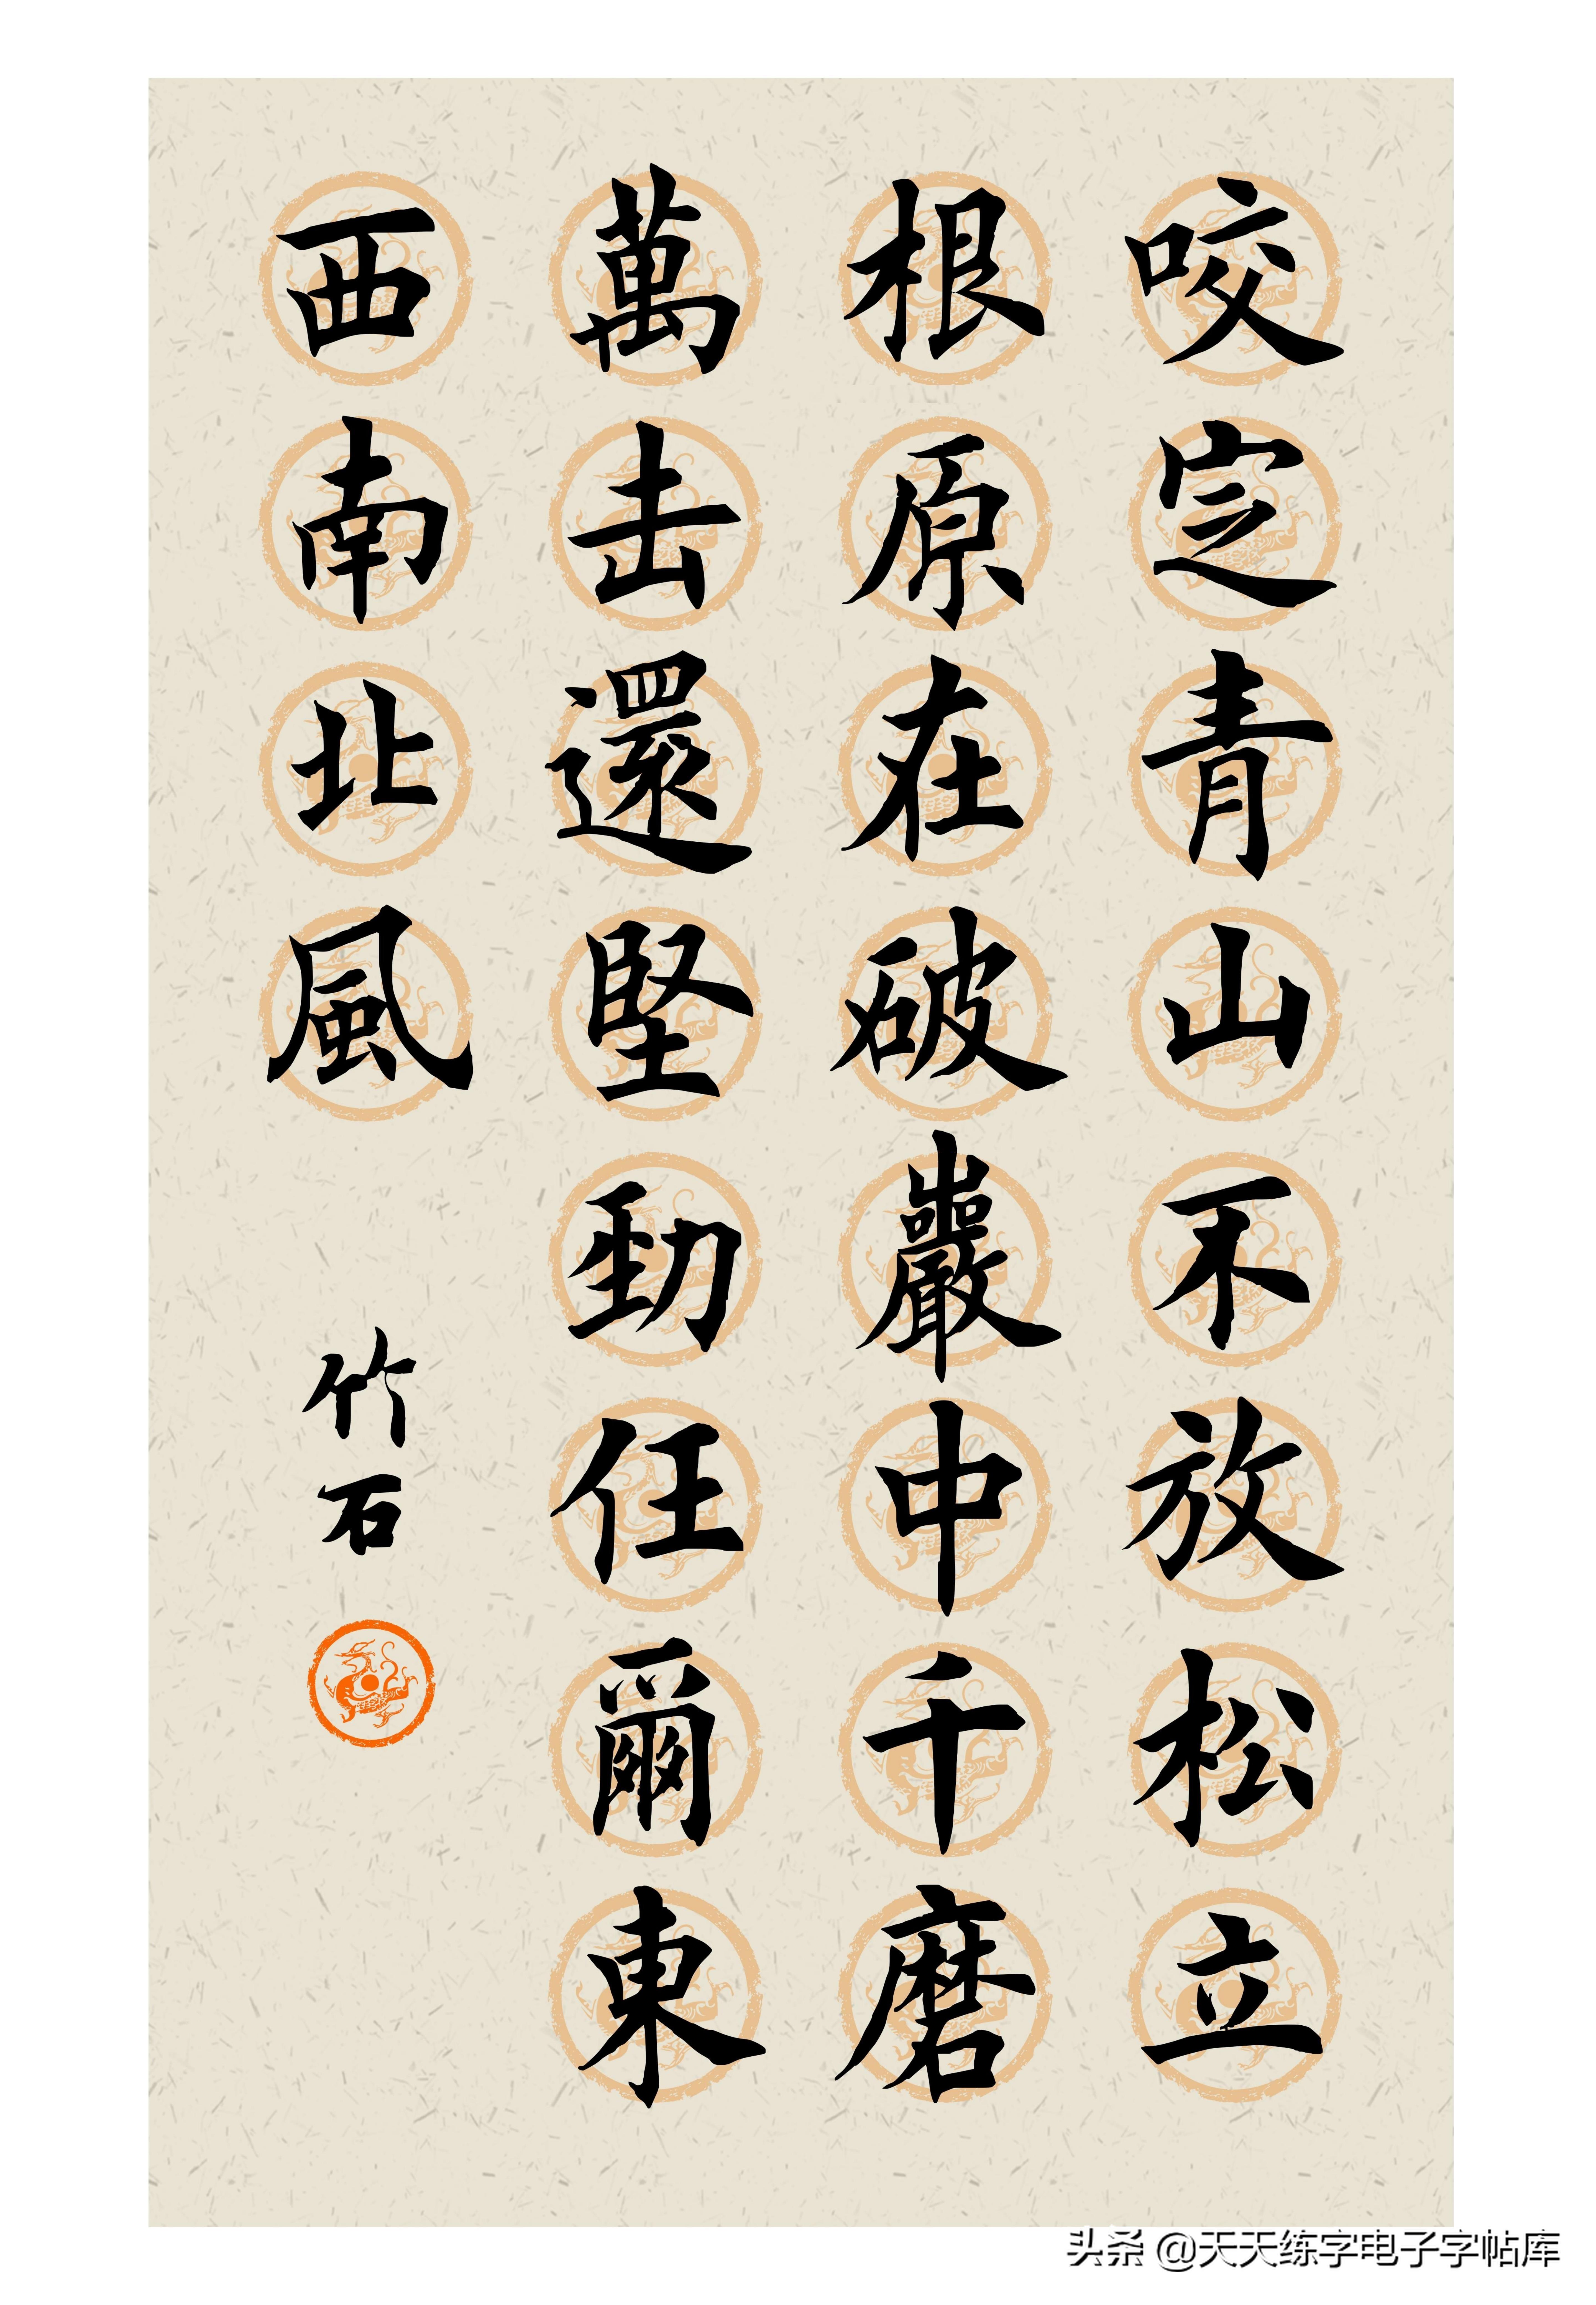 咬定青山不放松立
根原在破巖中千磨
萬击還堅勁任爾東
西南北風
竹石
头条 @天天练字电子字帖库